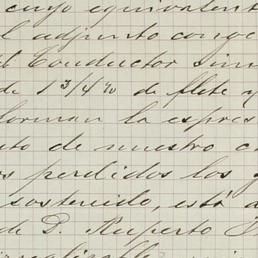 cuyo equivalent
l adjunto conoc
l Conductor sin
de 1 3/4 % de flete y
forman la espres
to de nuestro c
s perdidos los g
sostenido, está a
de D. Ruperto